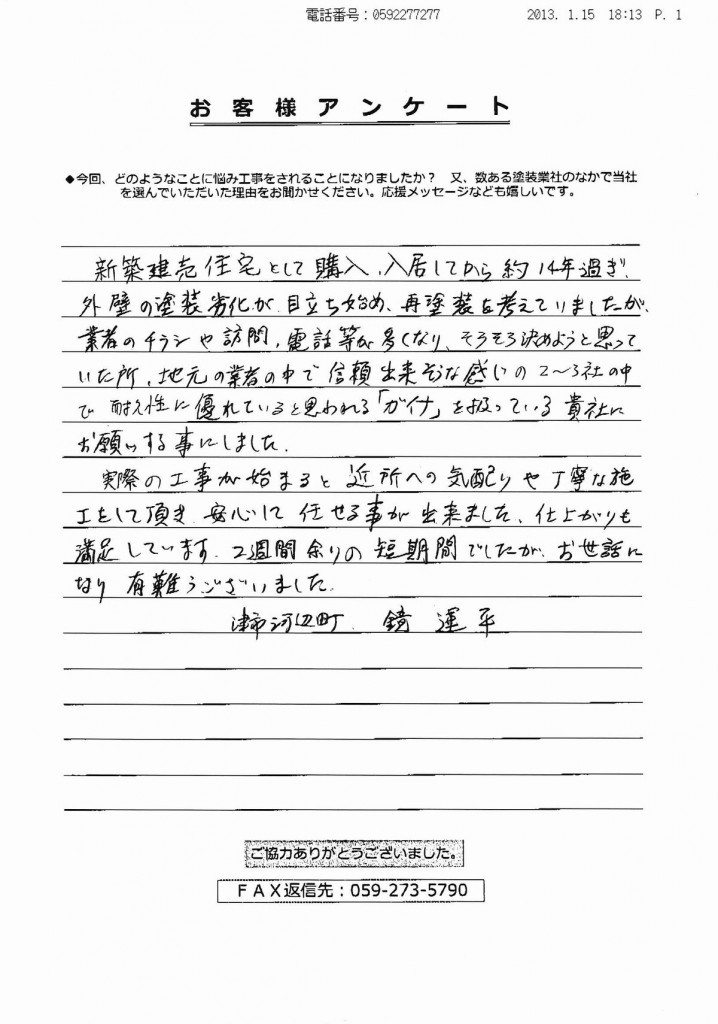 電話番号：0592277277 2013. 1.15 18:13 P. 1
お客様アンケート
◆今回、どのようなことに悩み工事をされることになりましたか？ 又、数ある塗装業社のなかで当社
を選んでいただいた理由をお聞かせください。応援メッセージなども嬉しいです。
新築建売住宅として購入、入居してから約14年過ぎ、
外壁の塗装劣化が目立ち始め、再塗装を考えていましたが、
業者のチラシや訪問、電話等が多くなり、そろそろ決めようと思って
いた所、地元の業者の中で信頼出来そうな感じの2〜3社の中
で耐久性に優れていると思われる「ガイナ」を扱っている貴社に
お願いする事にしました。
実際の工事が始まると近所への気配りや丁寧な施
工をして頂き安心して任せる事が出来ました、仕上がりも
満足しています。2週間余りの短期間でしたが、お世話に
なり有難うございました。
津市河辺町 鏡 運平
ご協力ありがとうございました。
ＦＡＸ返信先：059-273-5790